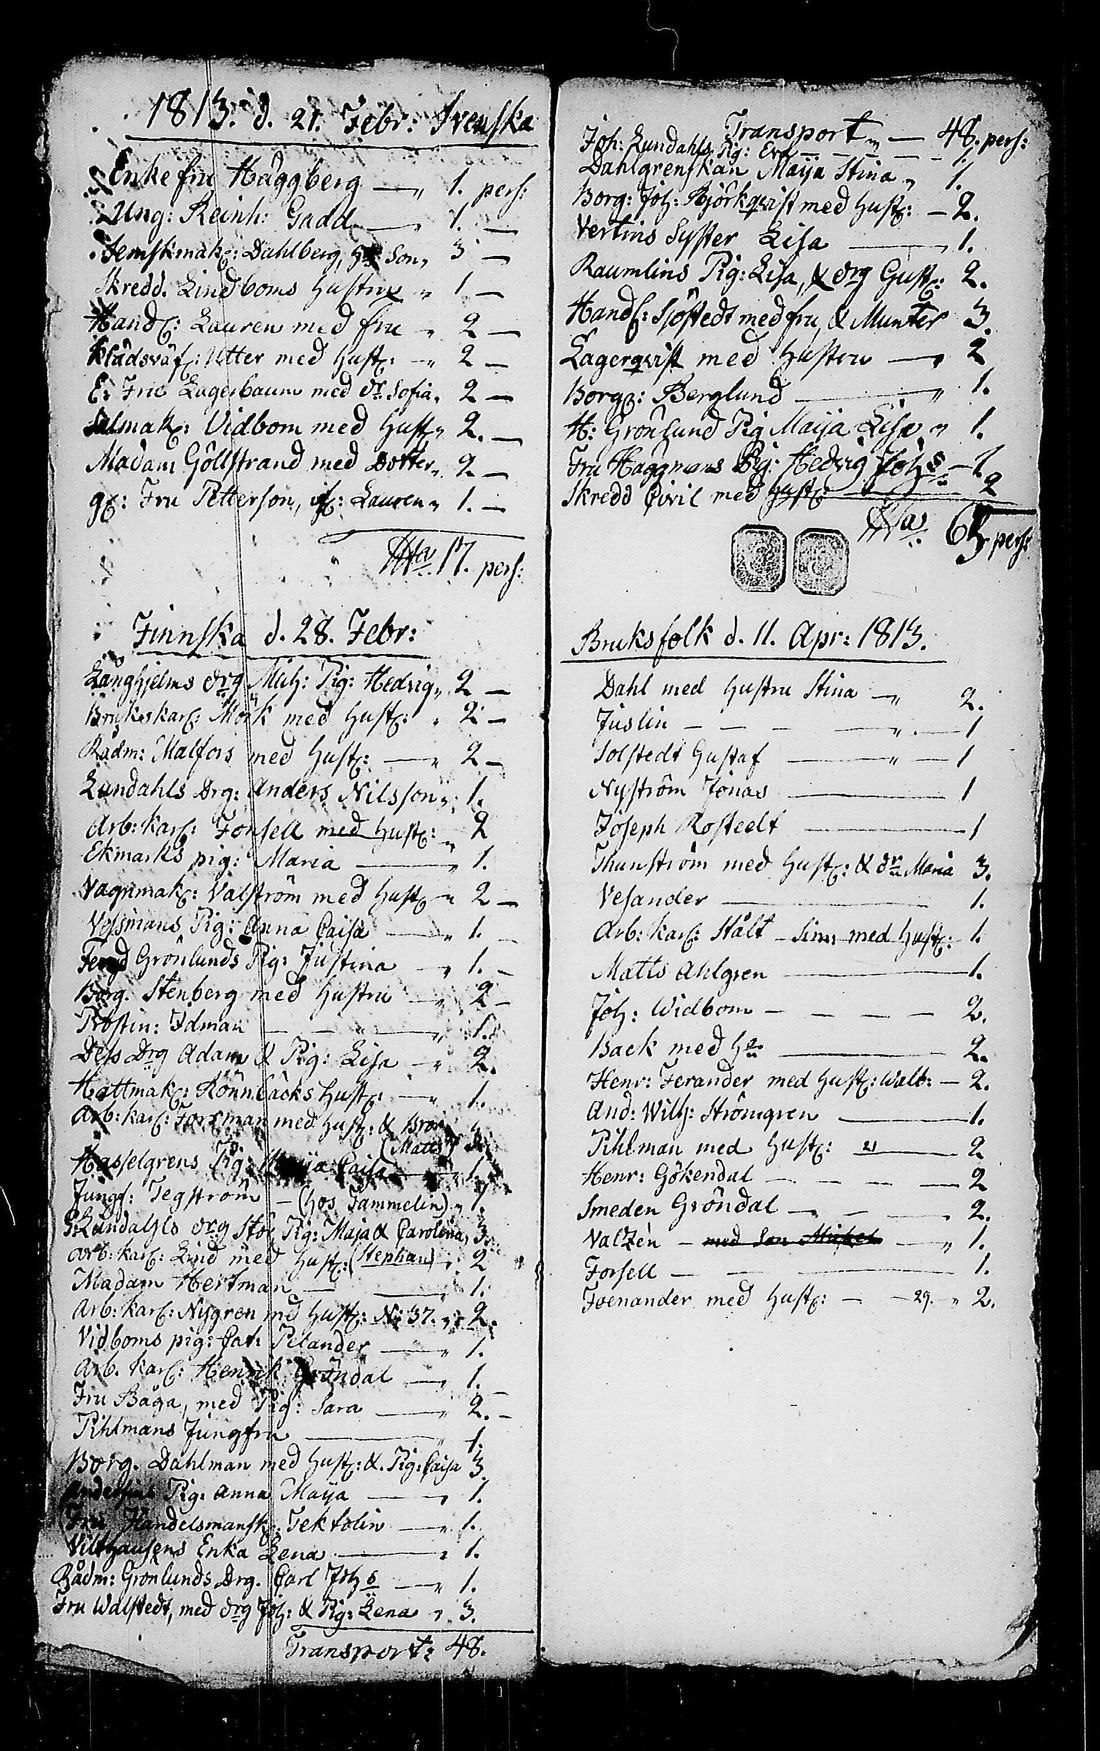 1813. d. 21. Febr: Svenska
Enkefru Häggberg — 1. pers:
Ung: Reinh: Gadd — 1. —
Semskmak: Dahlberg, Son, 3 —
Skredd. Lindboms Hustru 1 —
Hand: Lauren med fru 2 —
Klädsväf: Utter med Hust: 2 —
E: Fru Lagerbaum med dr Sofia, 2 —
Salmak: Vidbom med Hust 2. —
Madam Göllstrand med Dotter 2 —
gl: Fru Petterson, Lauren 1. —
17. pers:
Finnska d. 28. Febr:
Långhjelms drg Mich: Pig: Hedvig 2 —
Brukskarl: Mörk med Hust: 2 —
Rådm: Malfors med Hust: — 2 —
Lundahls Drg: Anders Nilsson 1.
Arb: karl: Forsell med Hust: 2
Ekmarks pig: Maria — 1.
Vagnmak: Valström med Hust 2 —
Vessmans Pig: Anna Caisa — 1. —
Grönlunds Pig: Justina — 1. —
Borg. Stenberg med Hustru — 2 —
Prostin: Idman — 1.
Dess Drg Adam & Pig: Lisa — 2.
Hattmak: Rönnbäcks Hust: — 1.
Arb: karl: Forsman med Hust: & Bror
(Matts) 3.
Hasselgrens Pig: Maija Caisa — 1.
Jungf: Tegström — (hos Tammelin) 1.
Lundahls drg Stor, Pig: Maja & Carolina, 3.
Arb: karl: Lind med Hust: (Stephan) 2
Madam Hertman — 1.
Arb: karl: Nygren med Hust: No 37. 2.
Vidboms pig: Cat: Pelander — 1.
Arb. karl: Henrik Gröndal — 1.
Fru Båga, med Pig: Sara — 2. —
Pihlmans Jungfru — 1.
Borg. Dahlman med Hust: & Pig: Caisa 3
Pig: Anna Maija — 1.
Fru Handelsmansk. Tektolin — 1.
Vilthausens Enka Lena — 1.
Rådm: Grönlunds Drg. Carl Joh — 1.
Fru Walstedt, med drg Joh: & Pig: Lena 3.
Transport: 48.
Transport — 48. pers:
Joh: Lundahls Pig: Eva
Dahlgrenskan Maija Stina 1.
Borg: Joh: Björkqvist med Hust: — 2.
Vertins Syster Lisa — 1.
Raumlins Pig: Lisa, & drg Gust: 2.
Handl: Sjöstedt med fru, & Munter 3.
Lagerqvist med Hustru — 2
Borg: Berglund — 1.
H: Grönlund Pig Maija Lisa 1.
Fru Häggmans Pig: Hedvig Johs — 1
Skredd Civil med Hust: — 2
pers:
Bruksfolk d. 11. Apr: 1813.
Dahl med Hustru Stina — 2.
Juslin — 1
Solstedt Gustaf — 1
Nyström Jonas — 1
Joseph Rosteelt — 1
Thunström med Hust: & dr Maria 3.
Vesander — 1.
Arb: karl: Stålt — Sim: med Hust: 1.
Matts Ahlgren — 1.
Joh: Widbom — 2.
Back med — 2.
Henr: Ferander med Hust: Walb: — 2.
And: Wilh: Strömgren — 1.
Pihlman med Hust: 21 — 2
Henr: Gökendal — 2
Smeden Gröndal — 2.
Valzén — med Son Mickel — 1.
Forsell — 1.
Foenander med Hust: — 29. 2.